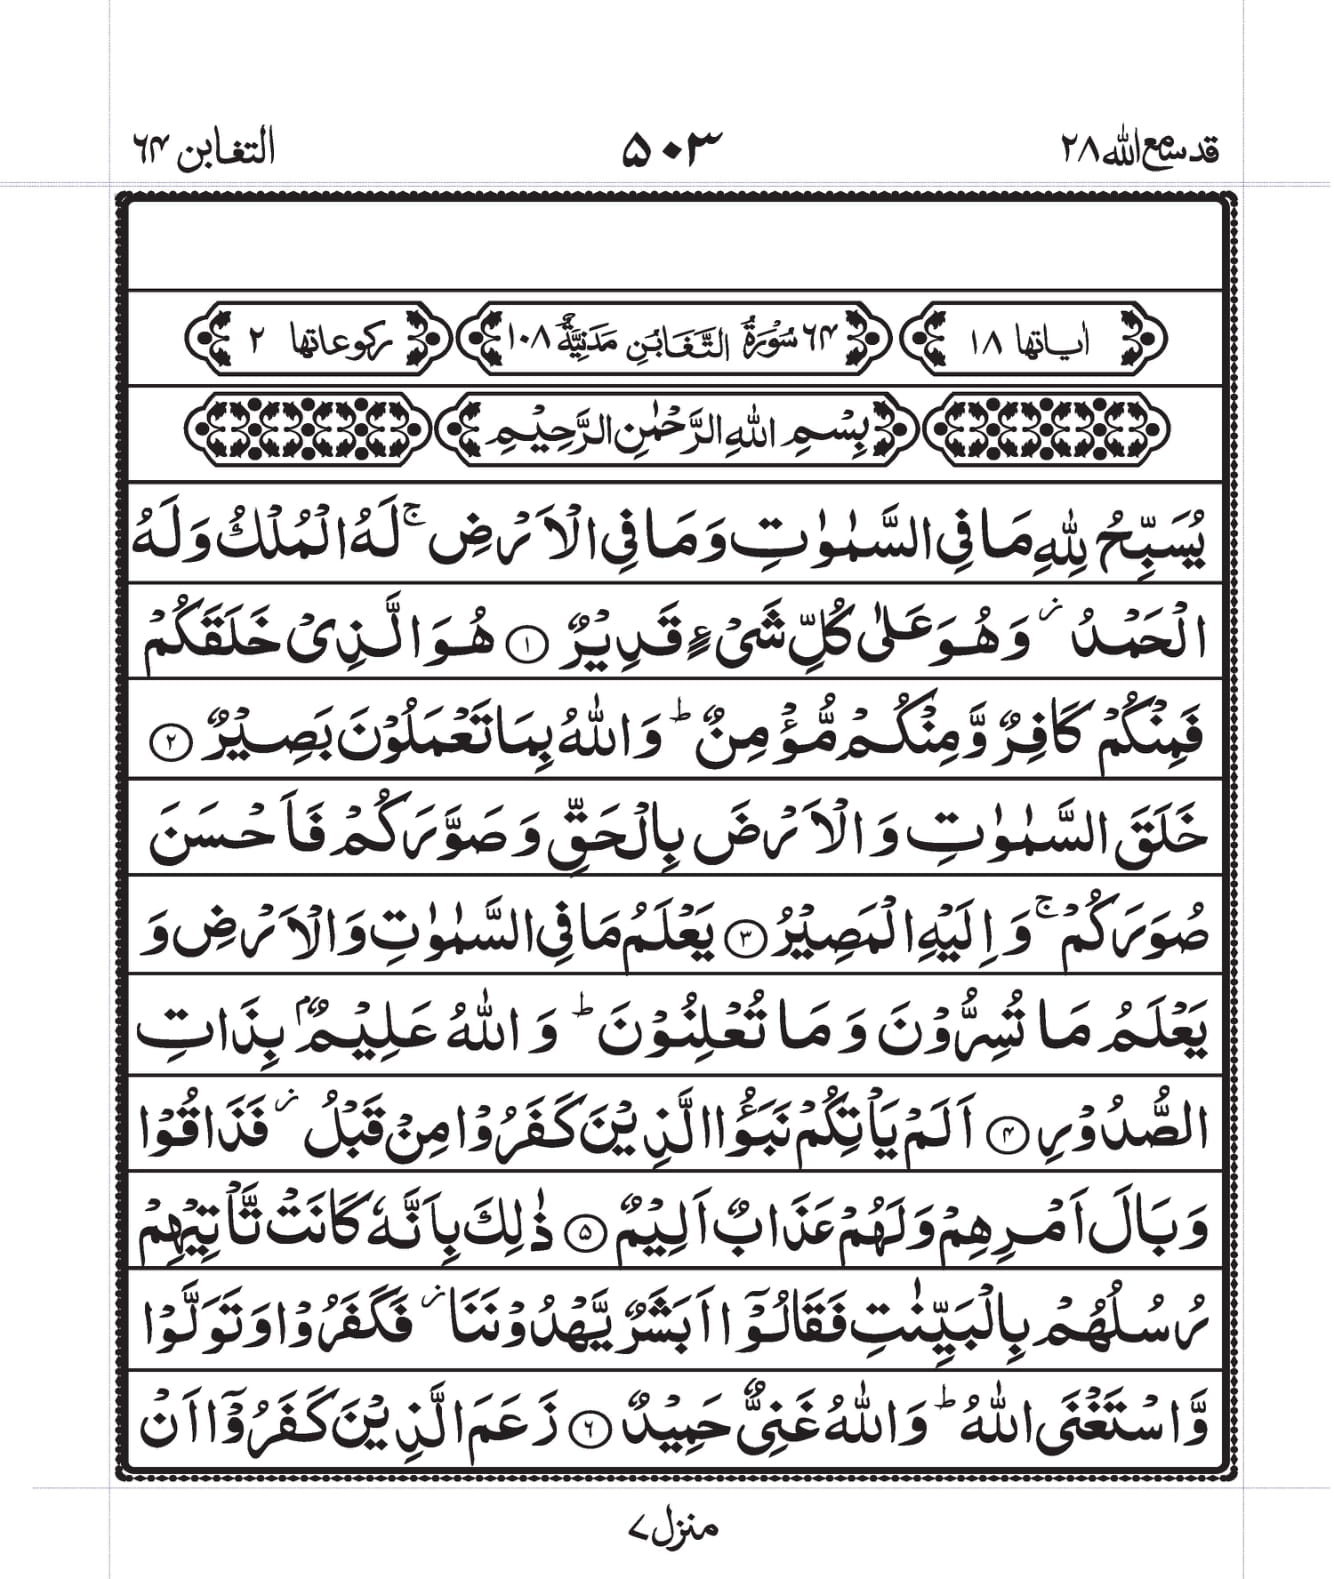 قد سمع الله ٢٨
٥٠٣
التغابن ٦٤
اٰياتها ١٨
٦٤ سُوْرَةُ التَّغَابُنِ مَدَنِيَّةٌ ١٠٨
ركوعاتها ٢
بِسْمِ اللّٰهِ الرَّحْمٰنِ الرَّحِيْمِ
يُسَبِّحُ لِلّٰهِ مَا فِى السَّمٰوٰتِ وَمَا فِى الْاَرْضِ ۚ لَهُ الْمُلْكُ وَلَهُ
الْحَمْدُ ؗ وَهُوَ عَلٰى كُلِّ شَىْءٍ قَدِيْرٌ ١ هُوَ الَّذِىْ خَلَقَكُمْ
فَمِنْكُمْ كَافِرٌ وَّمِنْكُمْ مُّؤْمِنٌ ؕ وَاللّٰهُ بِمَا تَعْمَلُوْنَ بَصِيْرٌ ٢
خَلَقَ السَّمٰوٰتِ وَالْاَرْضَ بِالْحَقِّ وَصَوَّرَكُمْ فَاَحْسَنَ
صُوَرَكُمْ ۚ وَاِلَيْهِ الْمَصِيْرُ ٣ يَعْلَمُ مَا فِى السَّمٰوٰتِ وَالْاَرْضِ وَ
يَعْلَمُ مَا تُسِرُّوْنَ وَمَا تُعْلِنُوْنَ ؕ وَاللّٰهُ عَلِيْمٌۢ بِذَاتِ
الصُّدُوْرِ ٤ اَلَمْ يَاْتِكُمْ نَبَؤُا الَّذِيْنَ كَفَرُوْا مِنْ قَبْلُ ؗ فَذَاقُوْا
وَبَالَ اَمْرِهِمْ وَلَهُمْ عَذَابٌ اَلِيْمٌ ٥ ذٰلِكَ بِاَنَّهٗ كَانَتْ تَّاْتِيْهِمْ
رُسُلُهُمْ بِالْبَيِّنٰتِ فَقَالُوْۤا اَبَشَرٌ يَّهْدُوْنَنَا ؗ فَكَفَرُوْا وَتَوَلَّوْا
وَّاسْتَغْنَى اللّٰهُ ؕ وَاللّٰهُ غَنِىٌّ حَمِيْدٌ ٦ زَعَمَ الَّذِيْنَ كَفَرُوْۤا اَنْ
منزل ٧